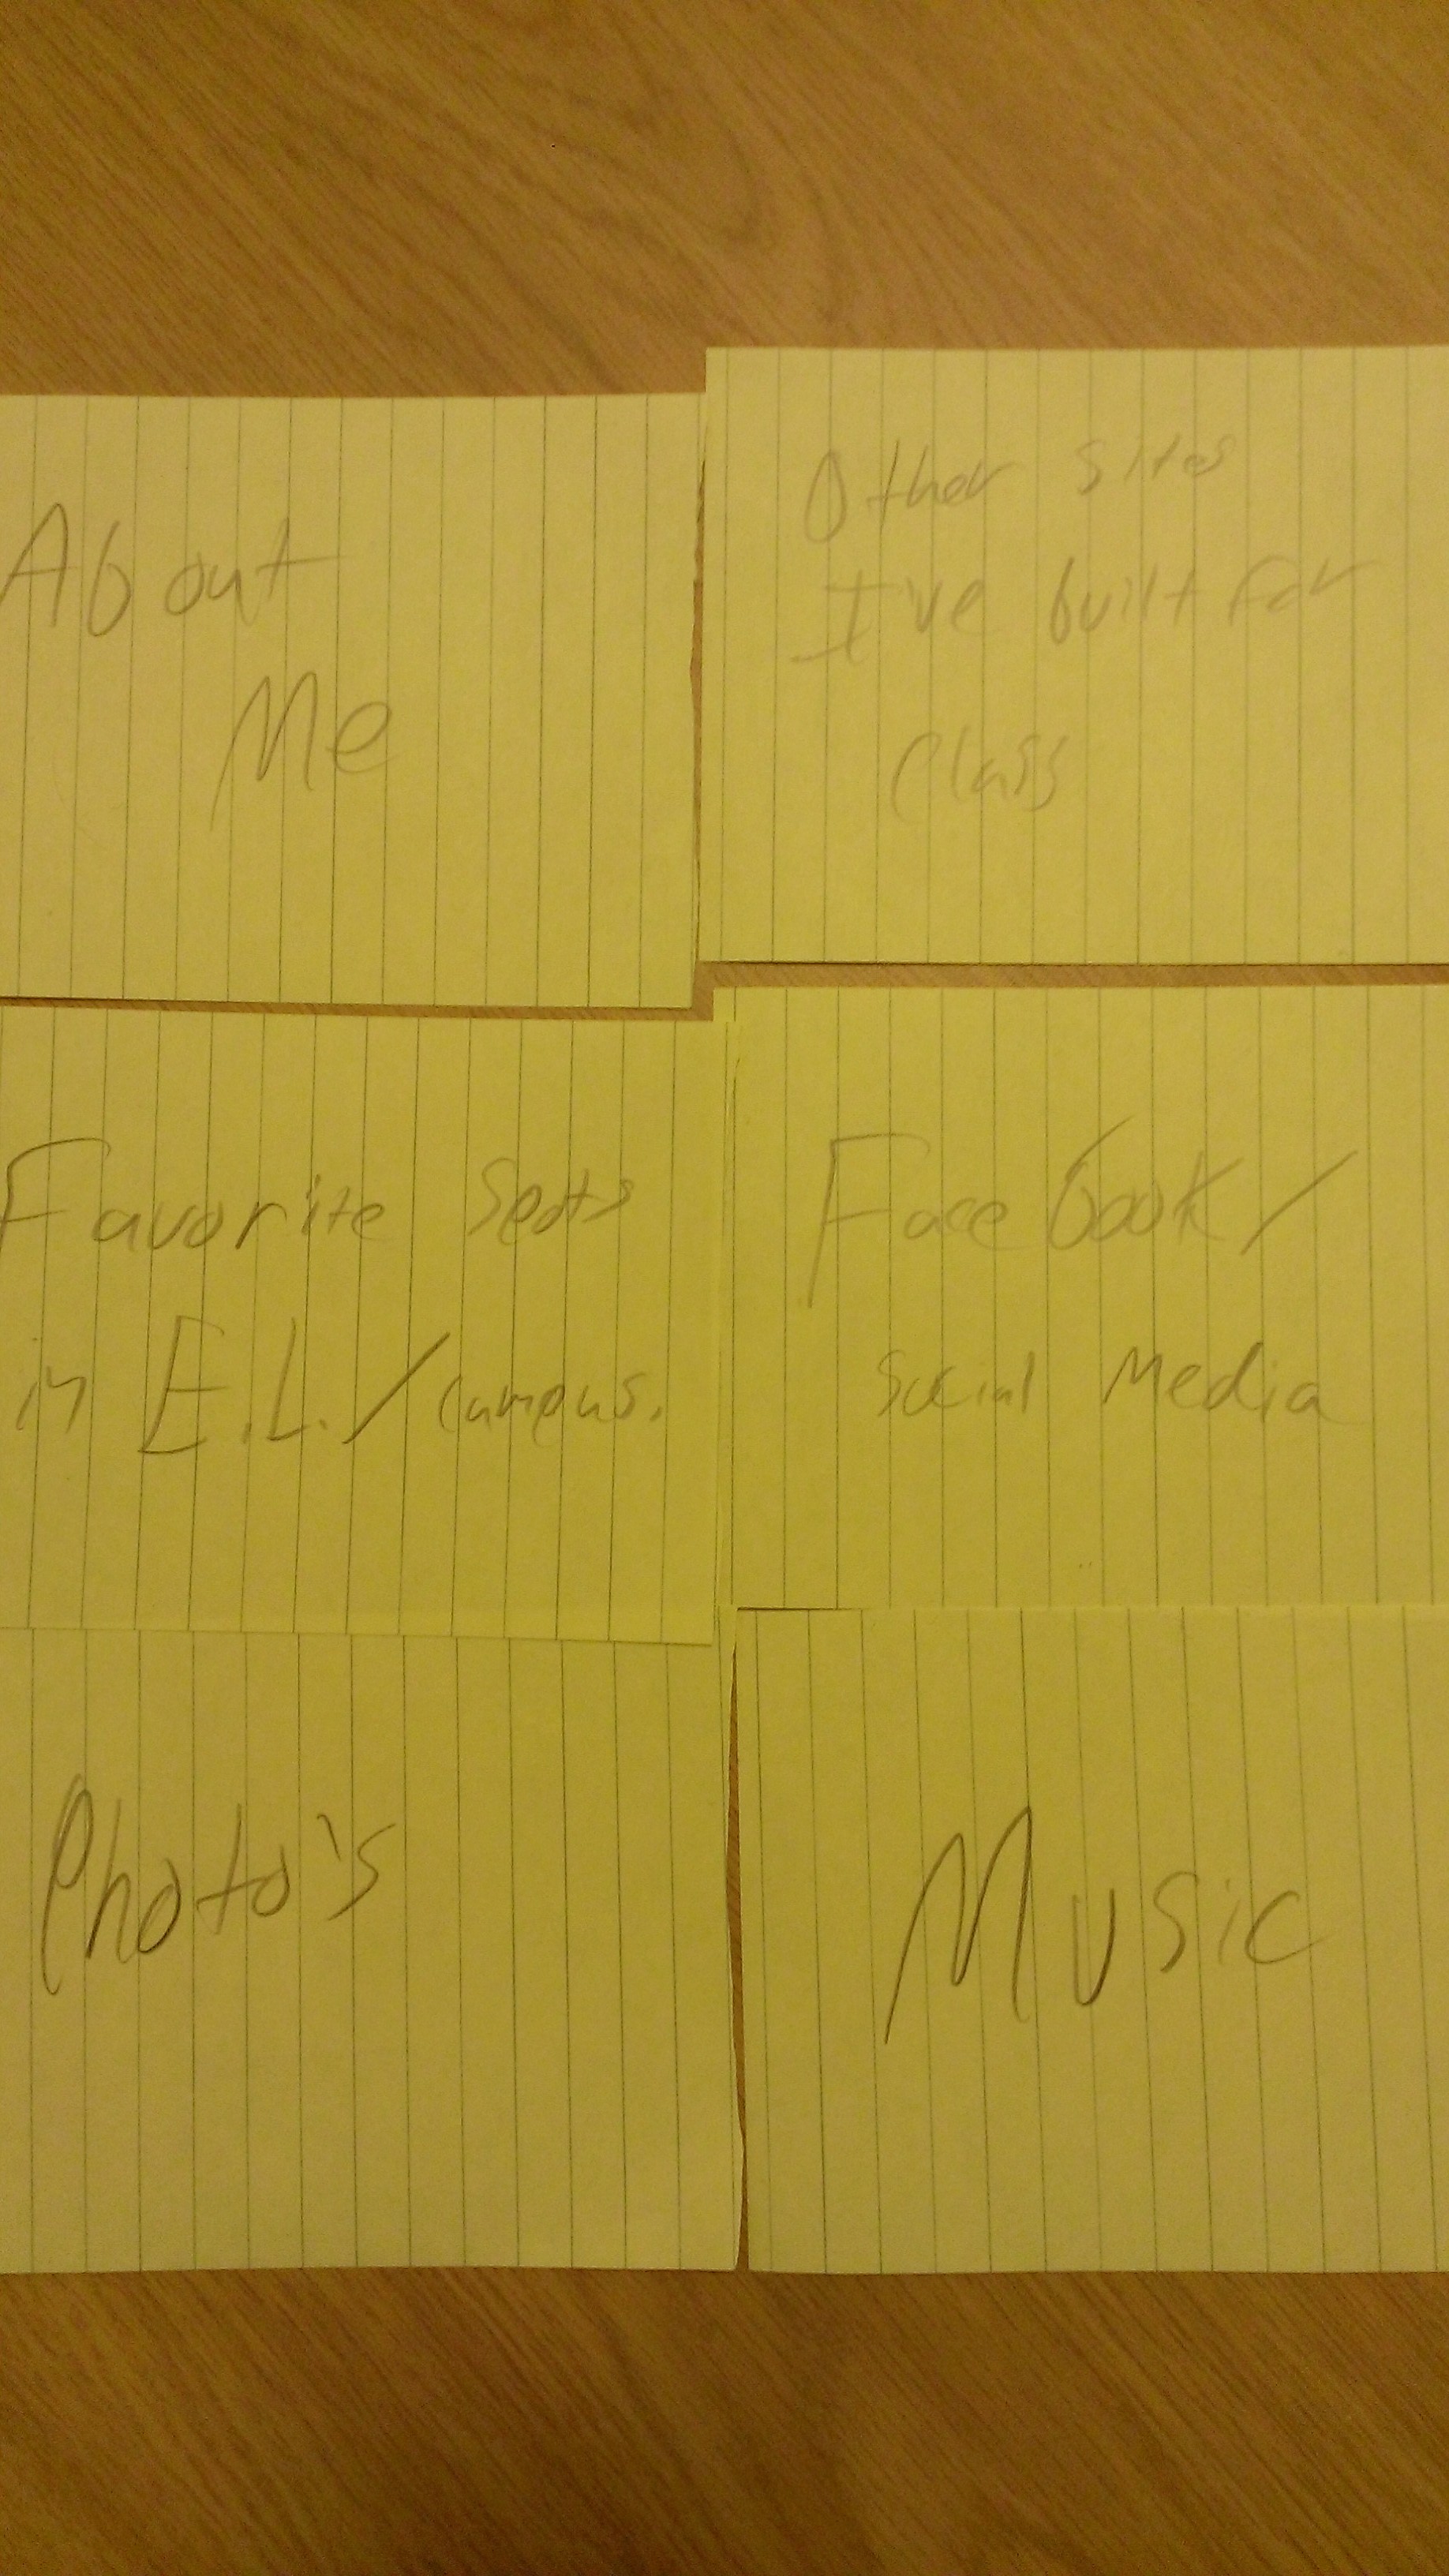 About
Me
Other sites
I've built for
class
Favorite
in E.L./campus.
Facebook/
social media
Photo's
Music